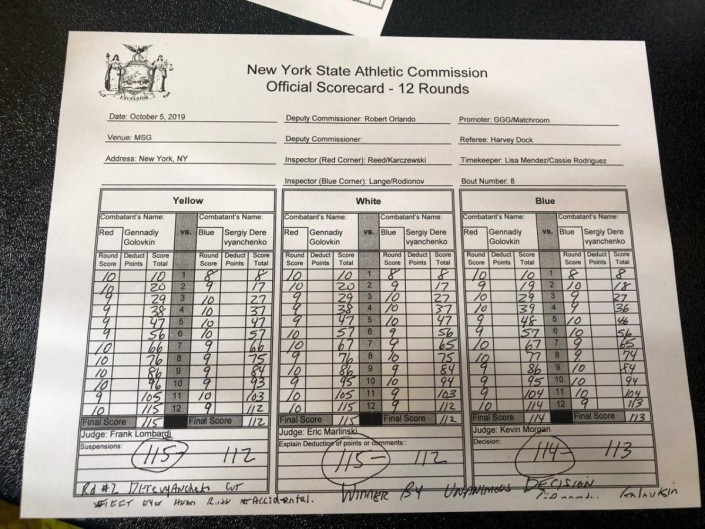 EXCELSIOR
New York State Athletic Commission
Official Scorecard - 12 Rounds
Date: October 5, 2019 Deputy Commissioner: Robert Orlando Promoter: GGG/Matchroom
Venue: MSG Deputy Commissioner: Referee: Harvey Dock
Address: New York, NY Inspector (Red Corner): Reed/Karczewski Timekeeper: Lisa Mendez/Cassie Rodriguez
Inspector (Blue Corner): Lange/Rodionov Bout Number: 8
Yellow White Blue
Combatant's Name: Combatant's Name: Combatant's Name: Combatant's Name: Combatant's Name: Combatant's Name:
Red Gennadiy vs. Blue Sergiy Dere Red Gennadiy vs. Blue Sergiy Dere Red Gennadiy vs. Blue Sergiy Dere
Golovkin vyanchenko Golovkin vyanchenko Golovkin vyanchenko
Round Deduct Score Round Deduct Score Round Deduct Score Round Deduct Score Round Deduct Score Round Deduct Score
Score Points Total Score Points Total Score Points Total Score Points Total Score Points Total Score Points Total
10 10 1 8 8 10 10 1 8 8 10 10 1 8 8
10 20 2 9 17 10 20 2 9 17 9 19 2 10 18
9 29 3 10 27 9 29 3 10 27 10 29 3 9 27
9 38 4 10 37 9 38 4 10 37 10 39 4 9 36
9 47 5 10 47 9 47 5 10 47 9 48 5 10 46
9 56 6 10 57 10 57 6 9 56 9 57 6 10 56
10 66 7 9 66 10 67 7 9 65 10 67 7 9 65
10 76 8 9 75 9 76 8 10 75 10 77 8 9 74
10 86 9 9 84 10 86 9 9 84 9 86 9 10 84
10 96 10 9 93 9 95 10 10 94 9 95 10 10 94
9 105 11 10 103 10 105 11 9 103 9 104 11 10 104
10 115 12 9 112 10 115 12 9 112 10 114 12 9 113
Final Score 115 Final Score 112 Final Score 115 Final Score 112 Final Score 114 Final Score 113
Judge: Frank Lombardi Judge: Eric Marlinski Judge: Kevin Morgan
Suspensions: Explain Deduction of points or comments: Decision:
115 112 115 112 114 113
Rd #2 Derevyanchenko Cut
Eye Accidental.
WINNER BY UNANIMOUS DECISION
Golovkin